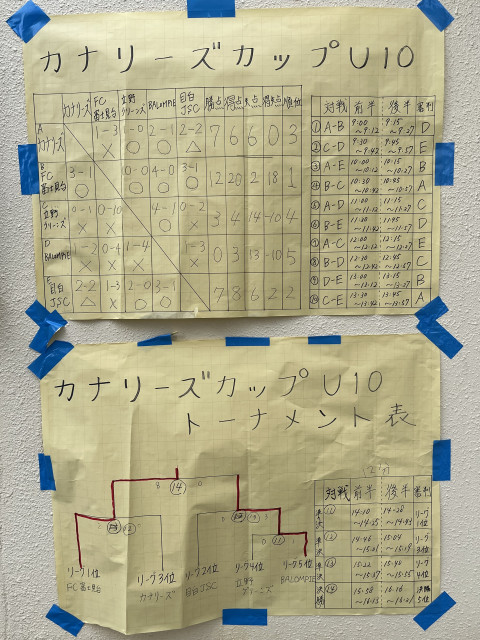 カナリーズカップU10
カナリーズ FC富士見台 立野クリーンズ BALOMPIE 目白JSC 勝点 得点 失点 得失点 順位
A カナリーズ 1-3 1-0 ○ 2-1 ○ 2-2 △ 7 6 6 0 3
B FC富士見台 3-1 ○ 4-0 ○ 3-1 ○ 12 20 2 18 1
C 立野クリーンズ 0-1 × 0-10 × 4-1 ○ 0-2 × 3 4 14 -10 4
D BALOMPIE 1-2 × 0-4 × 1-4 × 1-3 × 0 3 13 -10 5
E 目白JSC 2-2 △ 1-3 × 2-0 ○ 3-1 ○ 7 8 6 2 2
対戦 前半 後半 審判
① A-B 9:00～9:12 9:15～9:27 D
② C-D 9:30～9:42 9:45～9:57 E
③ A-E 10:00～10:12 10:15～10:27 B
④ B-C 10:30～10:42 10:45～10:57 A
⑤ A-D 11:00～11:12 11:15～11:27 C
⑥ B-E 11:30～11:42 11:45～11:57 D
⑦ A-C 12:00～12:12 12:15～12:27 E
⑧ B-D 12:30～12:42 12:45～12:57 C
⑨ D-E 13:00～13:12 13:15～13:27 B
⑩ C-E 13:30～13:42 13:45～13:57 A
カナリーズカップU10
トーナメント表
8 ⑭ 0
リーグ1位 リーグ3位 リーグ2位 リーグ4位 リーグ5位
FC富士見台 カナリーズ 目白JSC 立野クリーンズ BALOMPIE
対戦 前半 後半 審判
⑪ 14:10～14:25 14:28～14:43 リーグ1位
準決 ⑫ 14:46～15:01 15:04～15:19 リーグ2位
準決 ⑬ 15:22～15:37 15:40～15:55
決勝 ⑭ 15:58～16:13 16:16～16:31